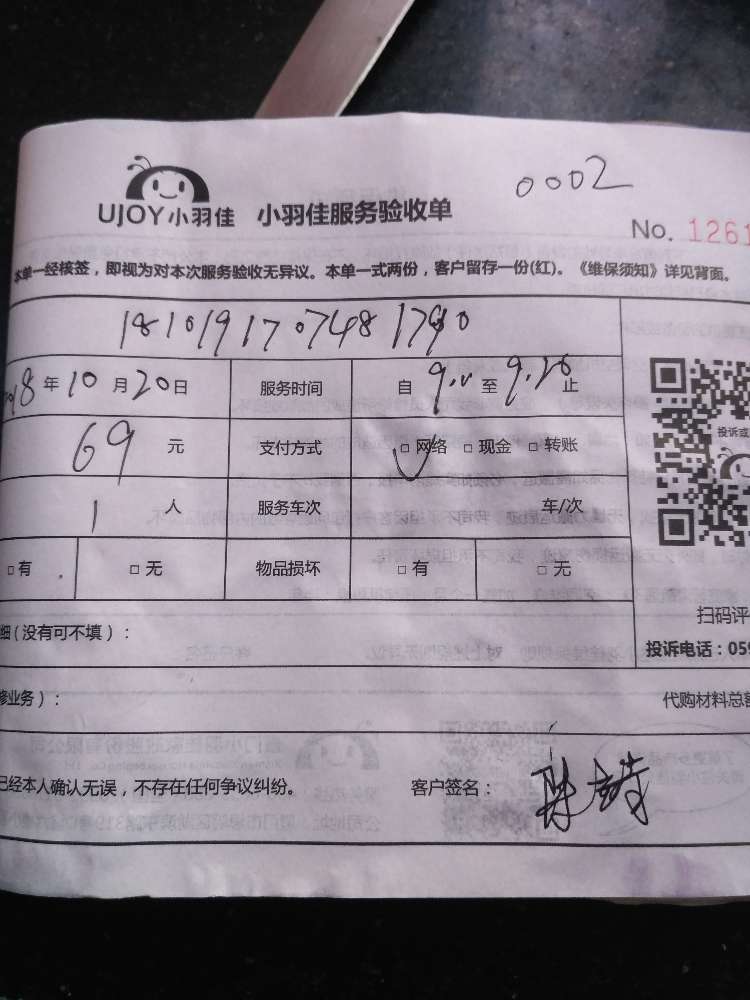 0002
UJOY小羽佳 小羽佳服务验收单
No. 1261
本单一经核签，即视为对本次服务验收无异议。本单一式两份，客户留存一份(红)。《维保须知》详见背面。
18年10月20日 服务时间 自 至 止
69元 支付方式 □网络 □现金 □转账
投诉或
1人 服务车次 车/次
□有 □无 物品损坏 □有 □无
扫码评
细(没有可不填)：
投诉电话：059
修业务)：
代购材料总额
已经本人确认无误，不存在任何争议纠纷。 客户签名：